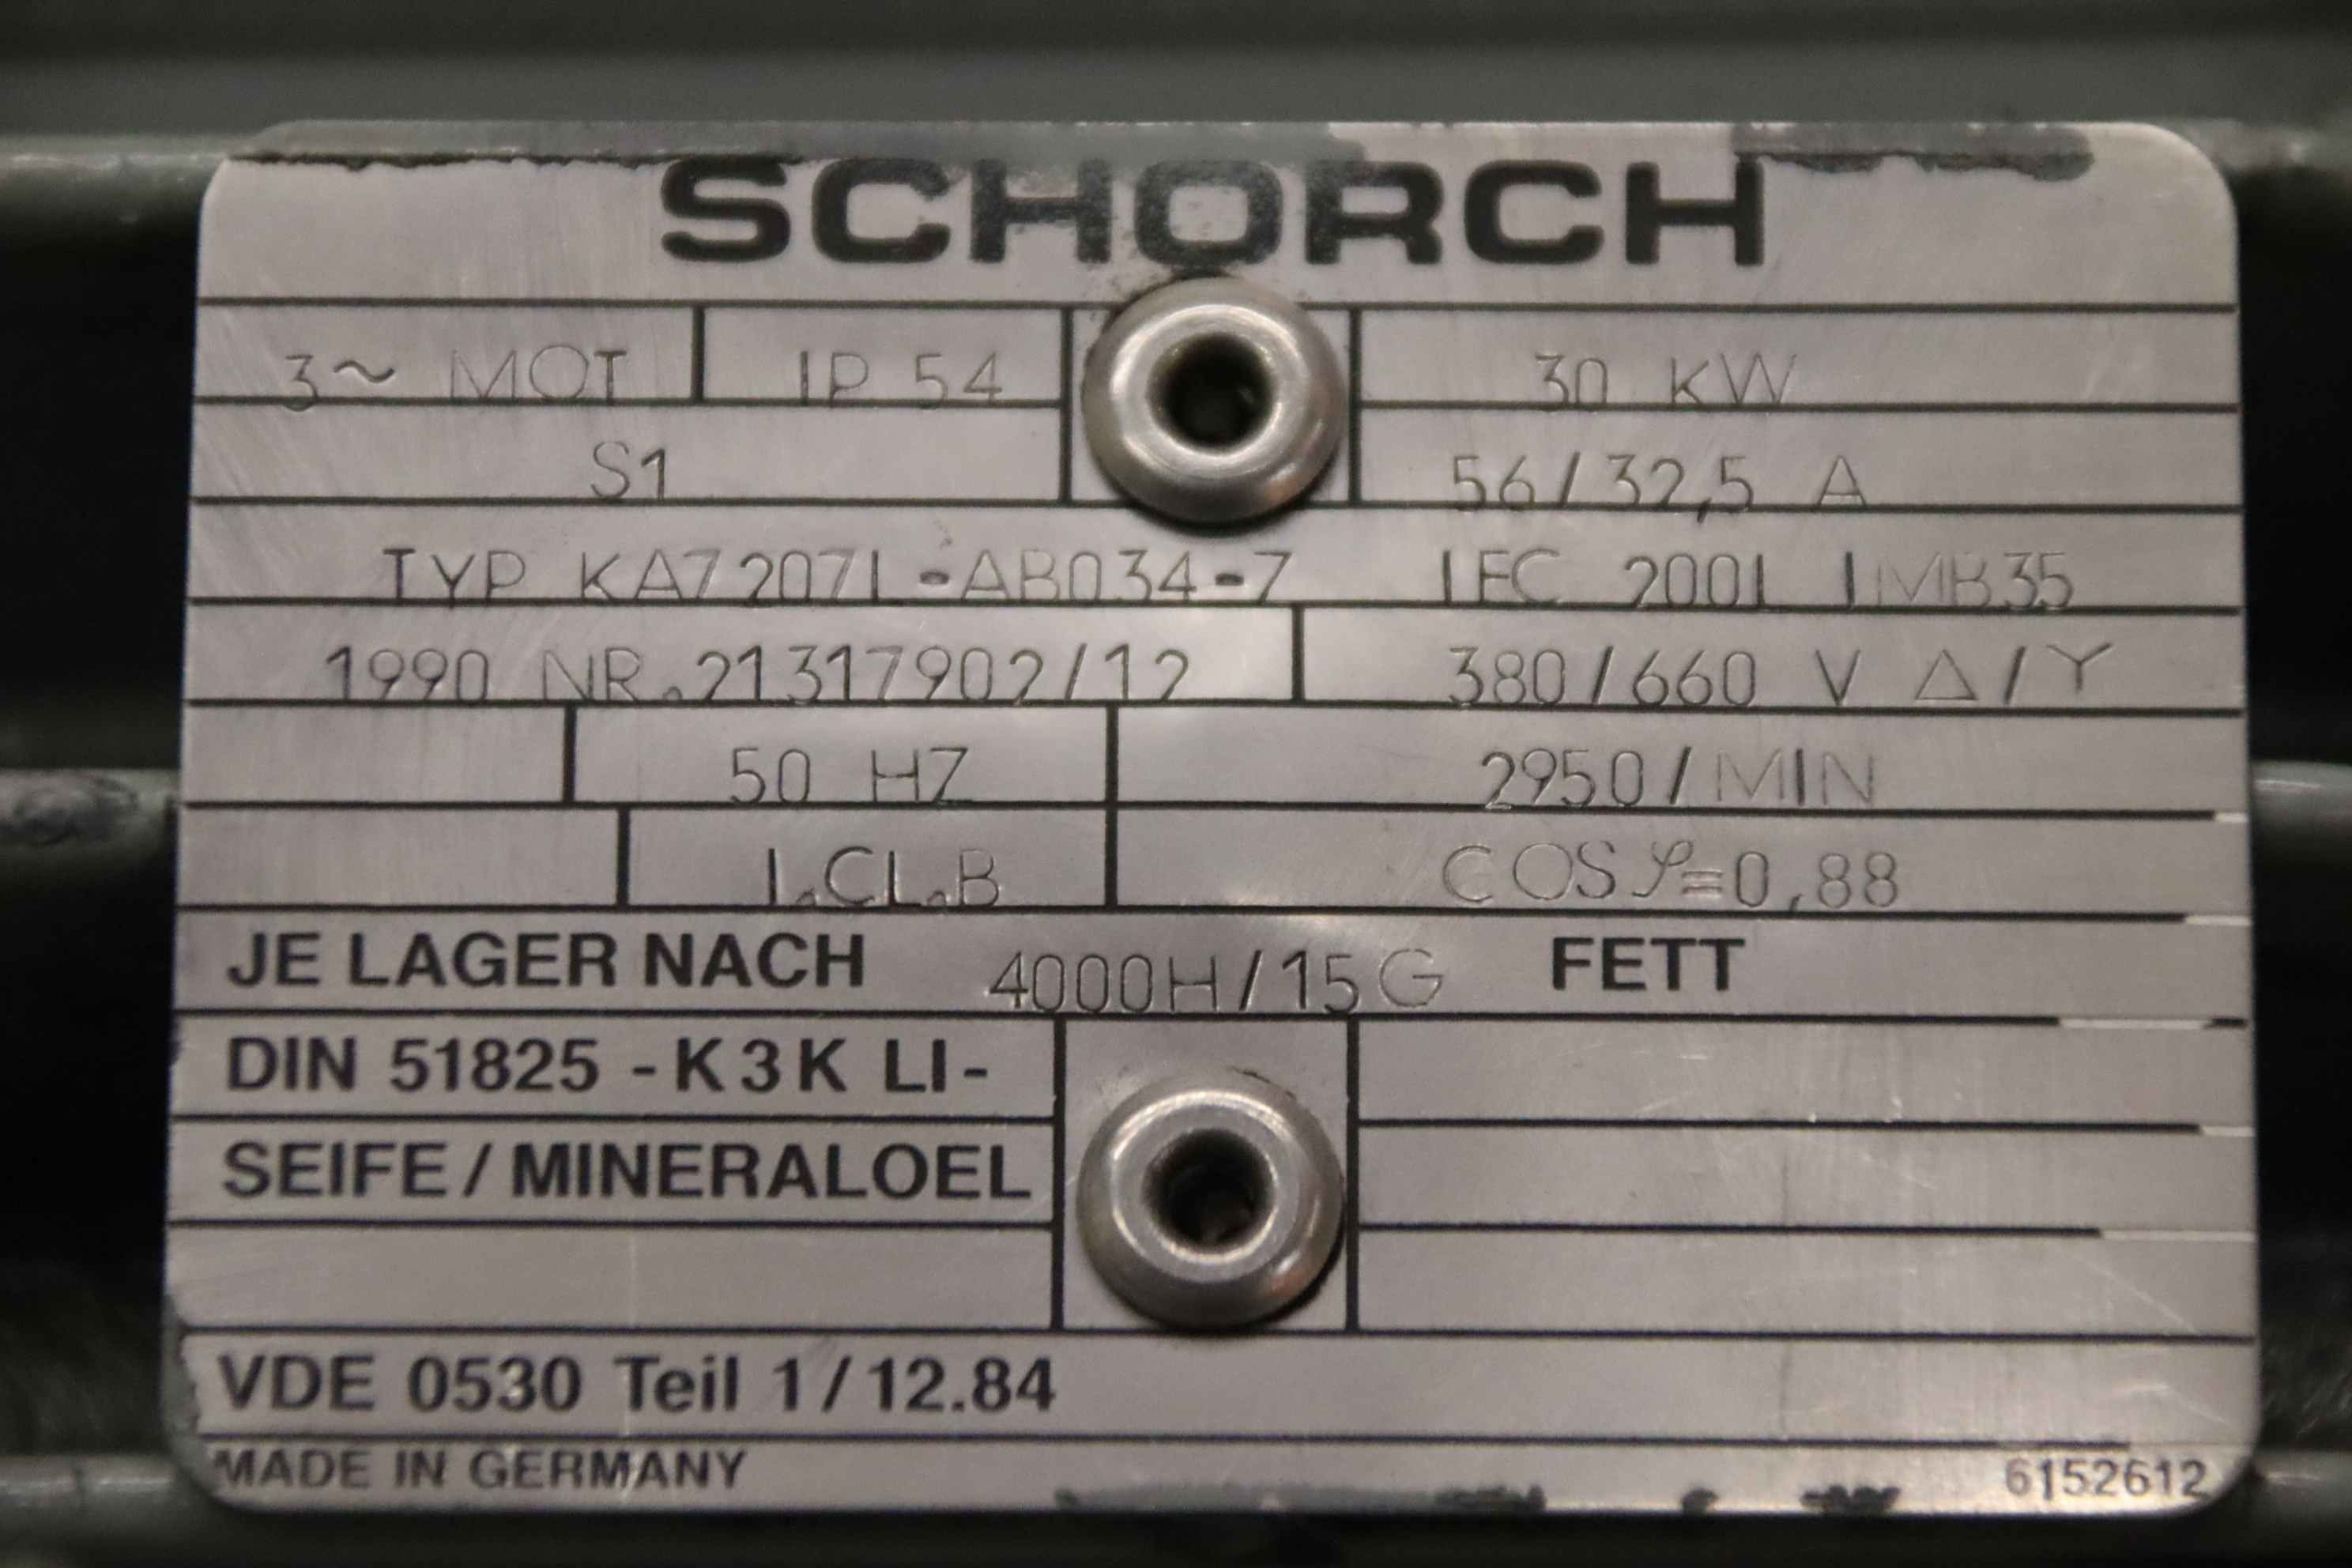 SCHORCH
3~ MOT IP 54 30 KW
S1 56/32,5 A
TYP KA7207L-AB034-7 IEC 200L IMB35
1990 NR.21317902/12 380/660 V Δ/Y
50 HZ 2950/MIN
I.CL.B COSφ=0,88
JE LAGER NACH 4000H/15G FETT
DIN 51825 -K3K LI-
SEIFE/MINERALOEL
VDE 0530 Teil 1/12.84
MADE IN GERMANY 6152612